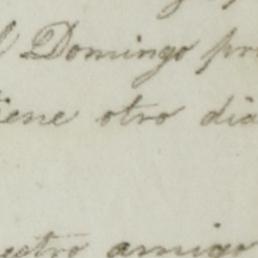 l Domingo pr
iene otro dia
uestro amigo